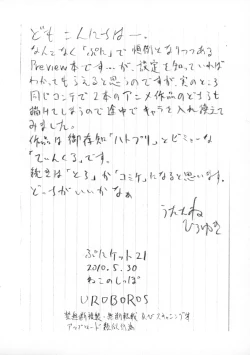 ども こんにちはー.
なんとなく「ぷに」で 恒例となりつつある
Preview本です…が、設定を知っていれば
わかってもらえると思うのですが、実のところ
同じコンテで 2本のアニメ作品のどちらも
描けてしまうので途中でキャラを入れ換えて
みました。
作品は 御存知「ハトプリ」と
「てぃんくる」です。
続きは「とら」か「コミケ」になると思います。
どっちがいいかなぁ
うたたね
ひろゆき
ぷにケット21
2010.5.30
ねこのしっぽ
UROBOROS
禁無断複製・無断転載 及びスキャニング等
アップロード